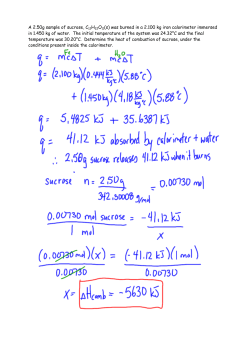 A 2.50g sample of sucrose, C₁₂H₂₂O₁₁(s) was burned in a 2.100 kg iron calorimeter immersed
in 1.450 kg of water. The initial temperature of the system was 24.32°C and the final
temperature was 30.20°C. Determine the heat of combustion of sucrose, under the
conditions present inside the calorimeter.
Fe H₂O
q = mcΔT + mcΔT
q = (2.100 kg)(0.444 kJ/kg°C)(5.88°C)
+ (1.450 kg)(4.18 kJ/kg°C)(5.88°C)
q = 5.4825 kJ + 35.6387 kJ
q = 41.12 kJ absorbed by calorimeter + water
∴ 2.50g sucrose releases 41.12 kJ when it burns
sucrose n = 2.50g / 342.30008 g/mol = 0.00730 mol
0.00730 mol sucrose / 1 mol = -41.12 kJ / x
(0.00730 mol)(x) / 0.00730 = (-41.12 kJ)(1 mol) / 0.00730
x = ΔHcomb = -5630 kJ